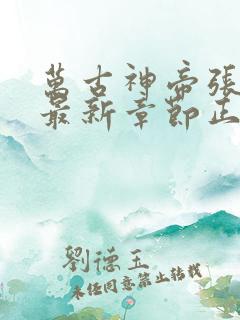 萬古神帝張
最新章節正
劉德玉
未經同意禁止轉載